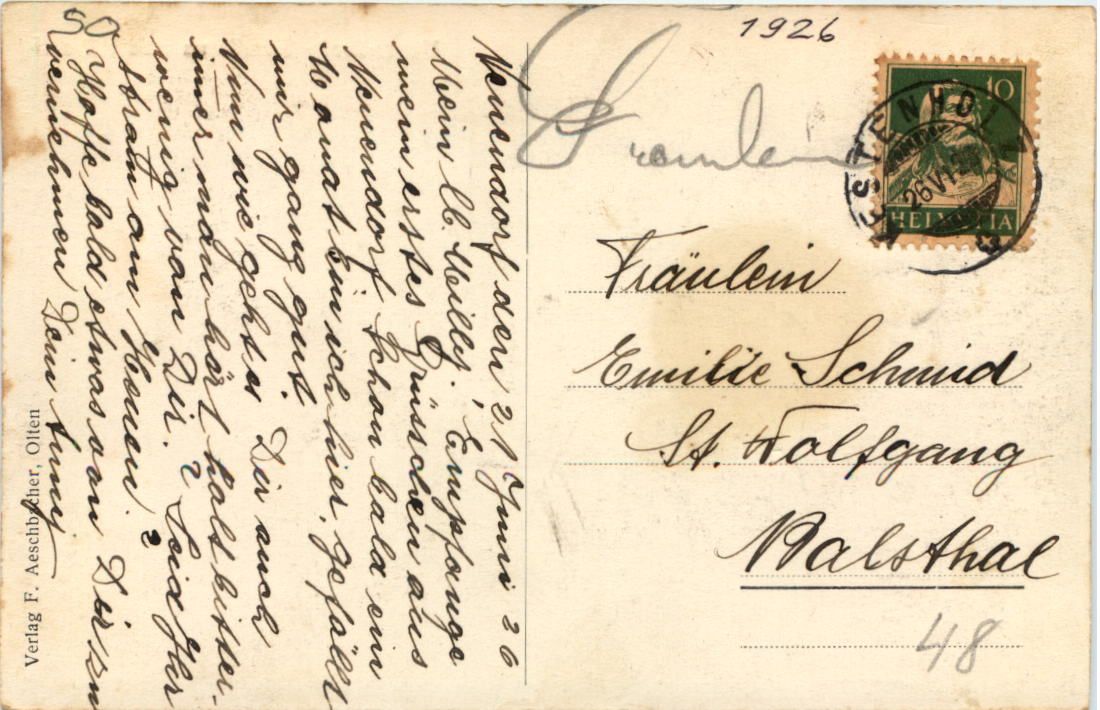 1926
50
Neuendorf den, 21 Juni 26
Mein lb. Milly! Empfange
mein erstes Grüsschen aus
Neuendorf. Schon bald ein
Monat bin ich hier, gefällt
mir ganz gut.
Nun wie geht es Dir auch
immer man hört halt bitter-
wenig von Dir. ? Seid Ihr
stram am Heuen?
Hoffe bald etwas von Dir zu
vernehmen Dein Anny
Verlag F. Aeschbacher, Olten
Fräulein
10
HELVETIA
26.VI.26
Fräulein
Emilie Schmid
St. Wolfgang
Balsthal
48